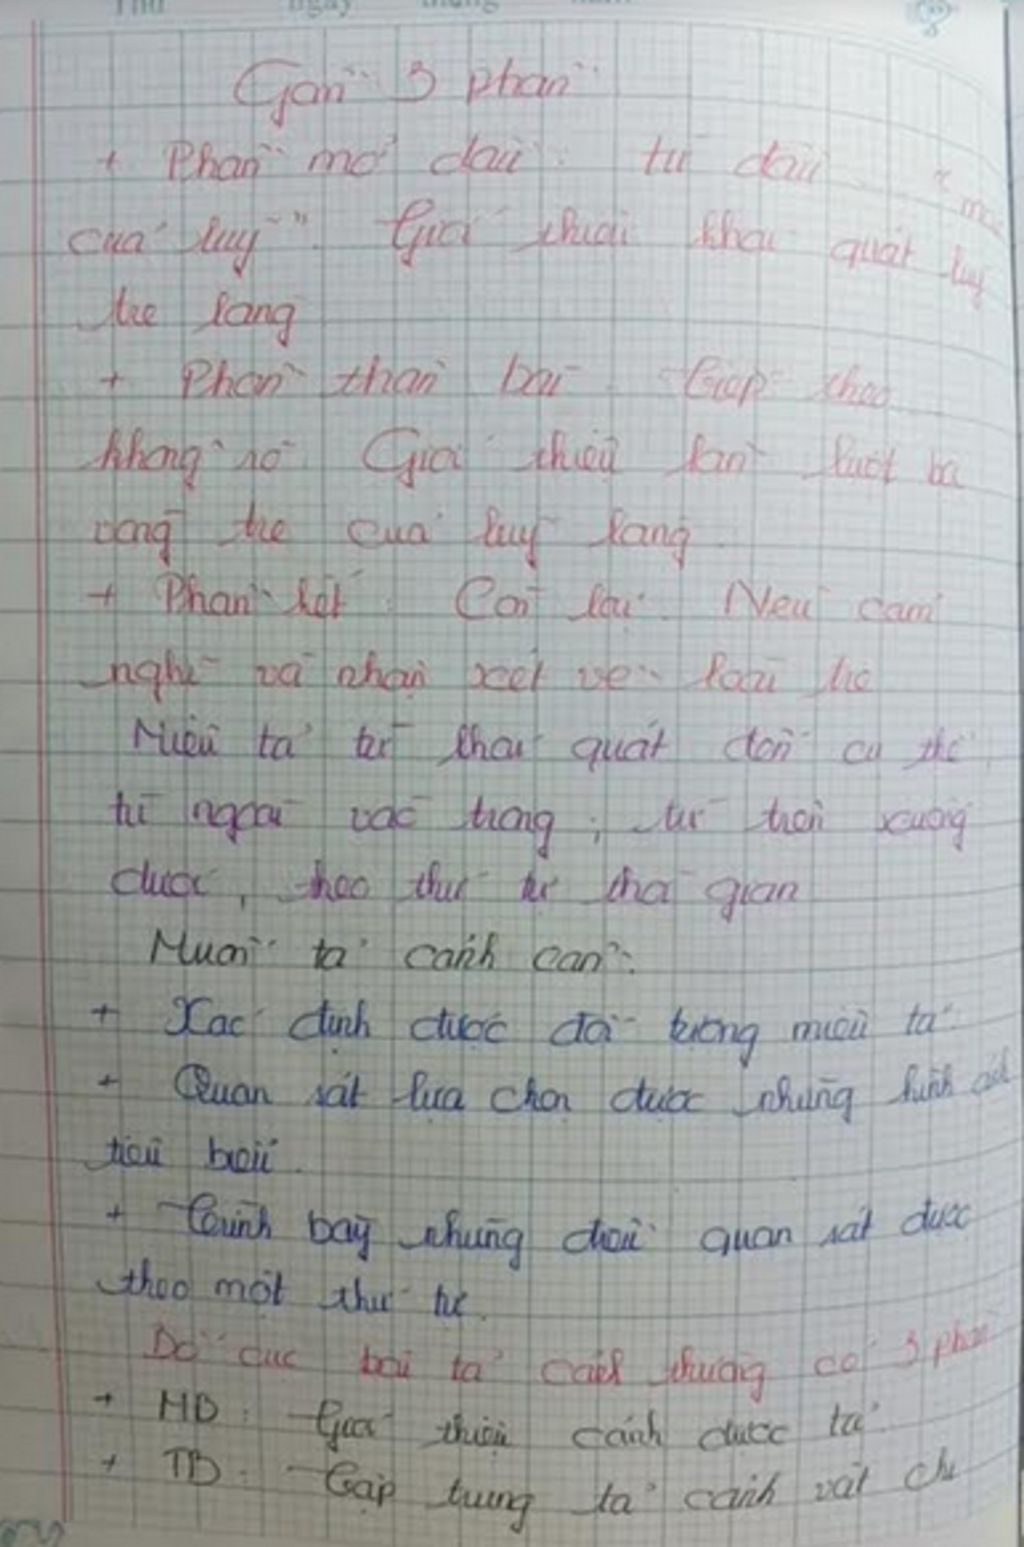 Thứ ngày tháng năm
Gồm 3 phần
+ Phần mở đầu: từ đầu "màu
của lũy". Giới thiệu khái quát lũy
tre làng
+ Phần thân bài. Tiếp theo
không rõ. Giới thiệu lần lượt ba
vòng tre của lũy làng
+ Phần kết: Còn lại. Nêu cảm
nghĩ và nhận xét về loài tre
Miêu tả từ khái quát đến cụ thể,
từ ngoài vào trong, từ trên xuống
dưới, theo thứ tự thời gian
Muốn tả cảnh cần:
+ Xác định được đối tượng miêu tả
+ Quan sát lựa chọn được những hình ảnh
tiêu biểu.
+ Trình bày những điều quan sát được
theo một thứ tự.
Bố cục bài tả cảnh thường có 3 phần
+ MB: Giới thiệu cảnh được tả
+ TB: Tập trung tả cảnh vật chi